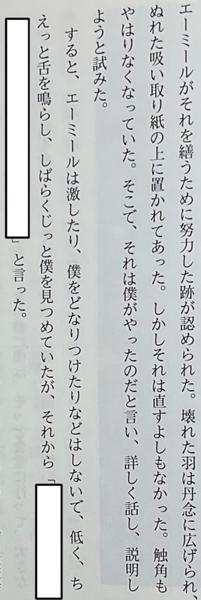 エーミールがそれを繕うために努力した跡が認められた。壊れた羽は丹念に広げられ、
ぬれた吸い取り紙の上に置かれてあった。しかしそれは直すよしもなかった。触角も
やはりなくなっていた。そこで、それは僕がやったのだと言い、詳しく話し、説明し
ようと試みた。
すると、エーミールは激したり、僕をどなりつけたりなどはしないで、低く、ち
えっと舌を鳴らし、しばらくじっと僕を見つめていたが、それから「
」と言った。